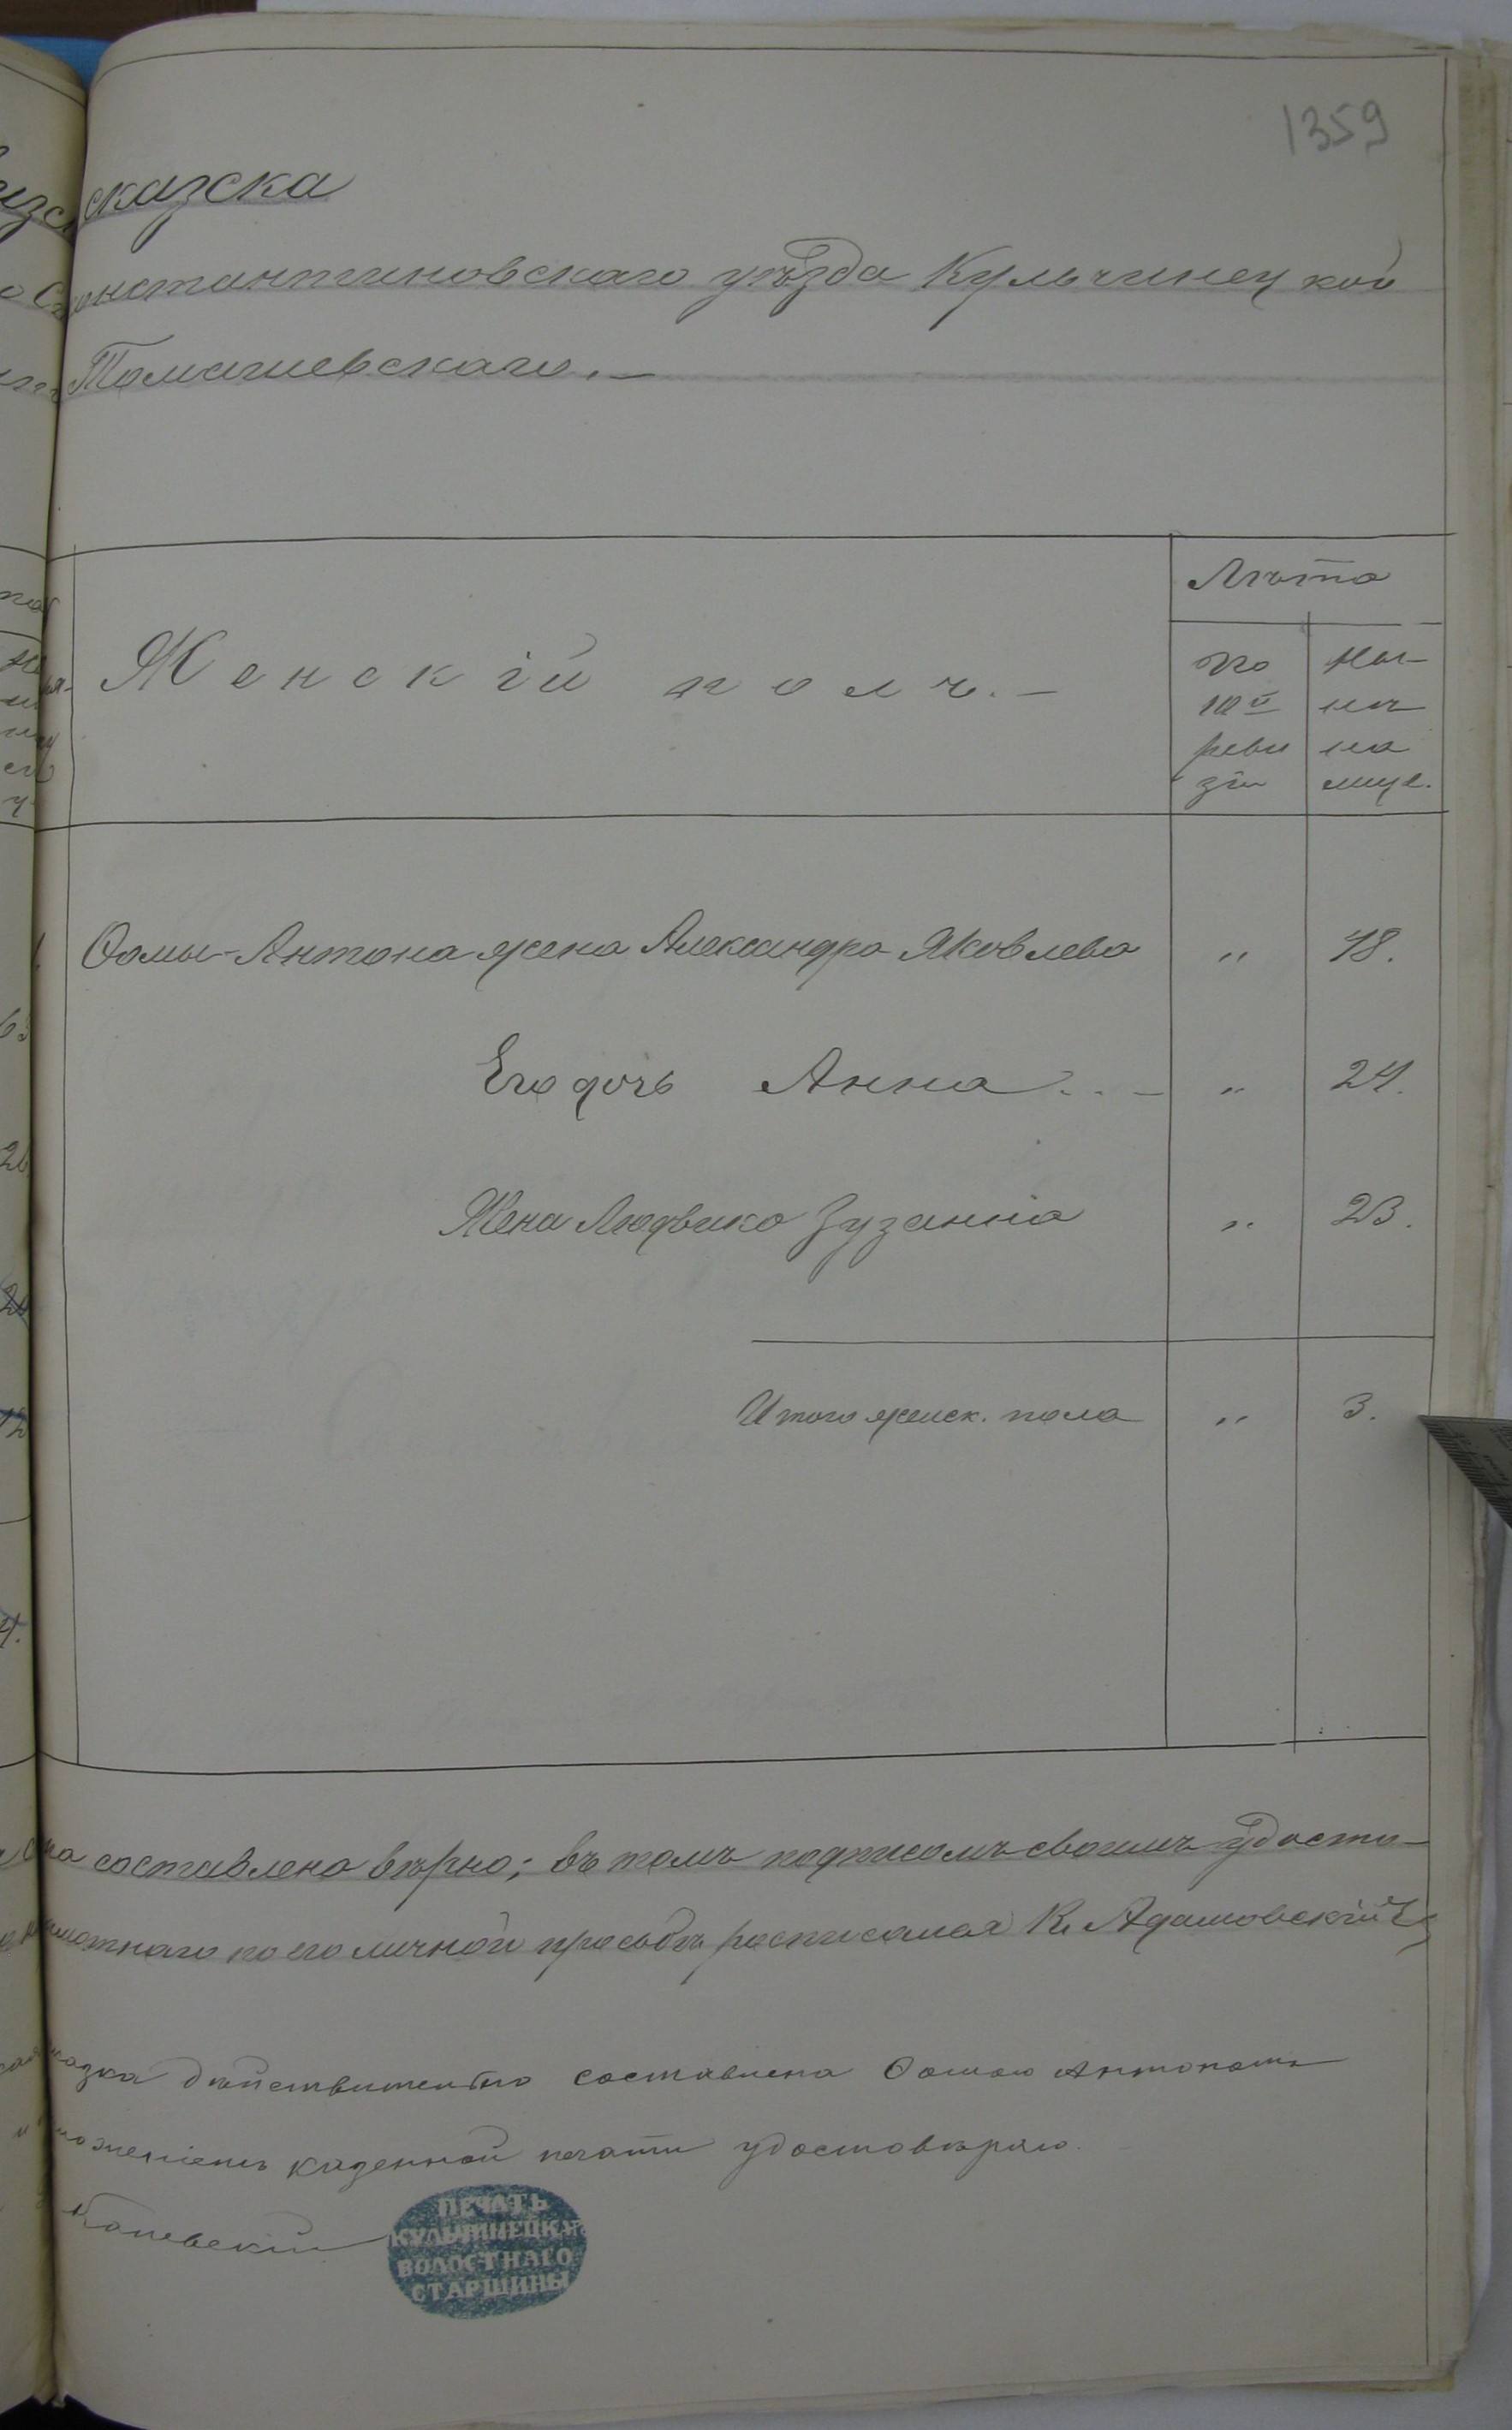 1359
сказска
онстантиновскаго уѣзда Кульчинецкой
Томашевскаго.—
Женскій полъ.—
Лѣта
по 10й реви зіи
Ны- нѣ на лице.
Ѳомы-Антона жена Александра Яковлева " 48.
Его дочь Анна . . — " 24.
Жена Людвика Зузанна " 23.
Итого женск. пола " 3.
составлена вѣрно; въ томъ подписомъ своимъ удосто-
мотнаго по его личной просьбѣ росписался К. Адамовскій
казка дѣйствительно составлена Ѳомою Антономъ
ложеніемъ казенной печати удостовѣряю.
ПЕЧАТЬ
КУЛЬЧИНЕЦКАГО
ВОЛОСТНАГО
СТАРШИНЫ